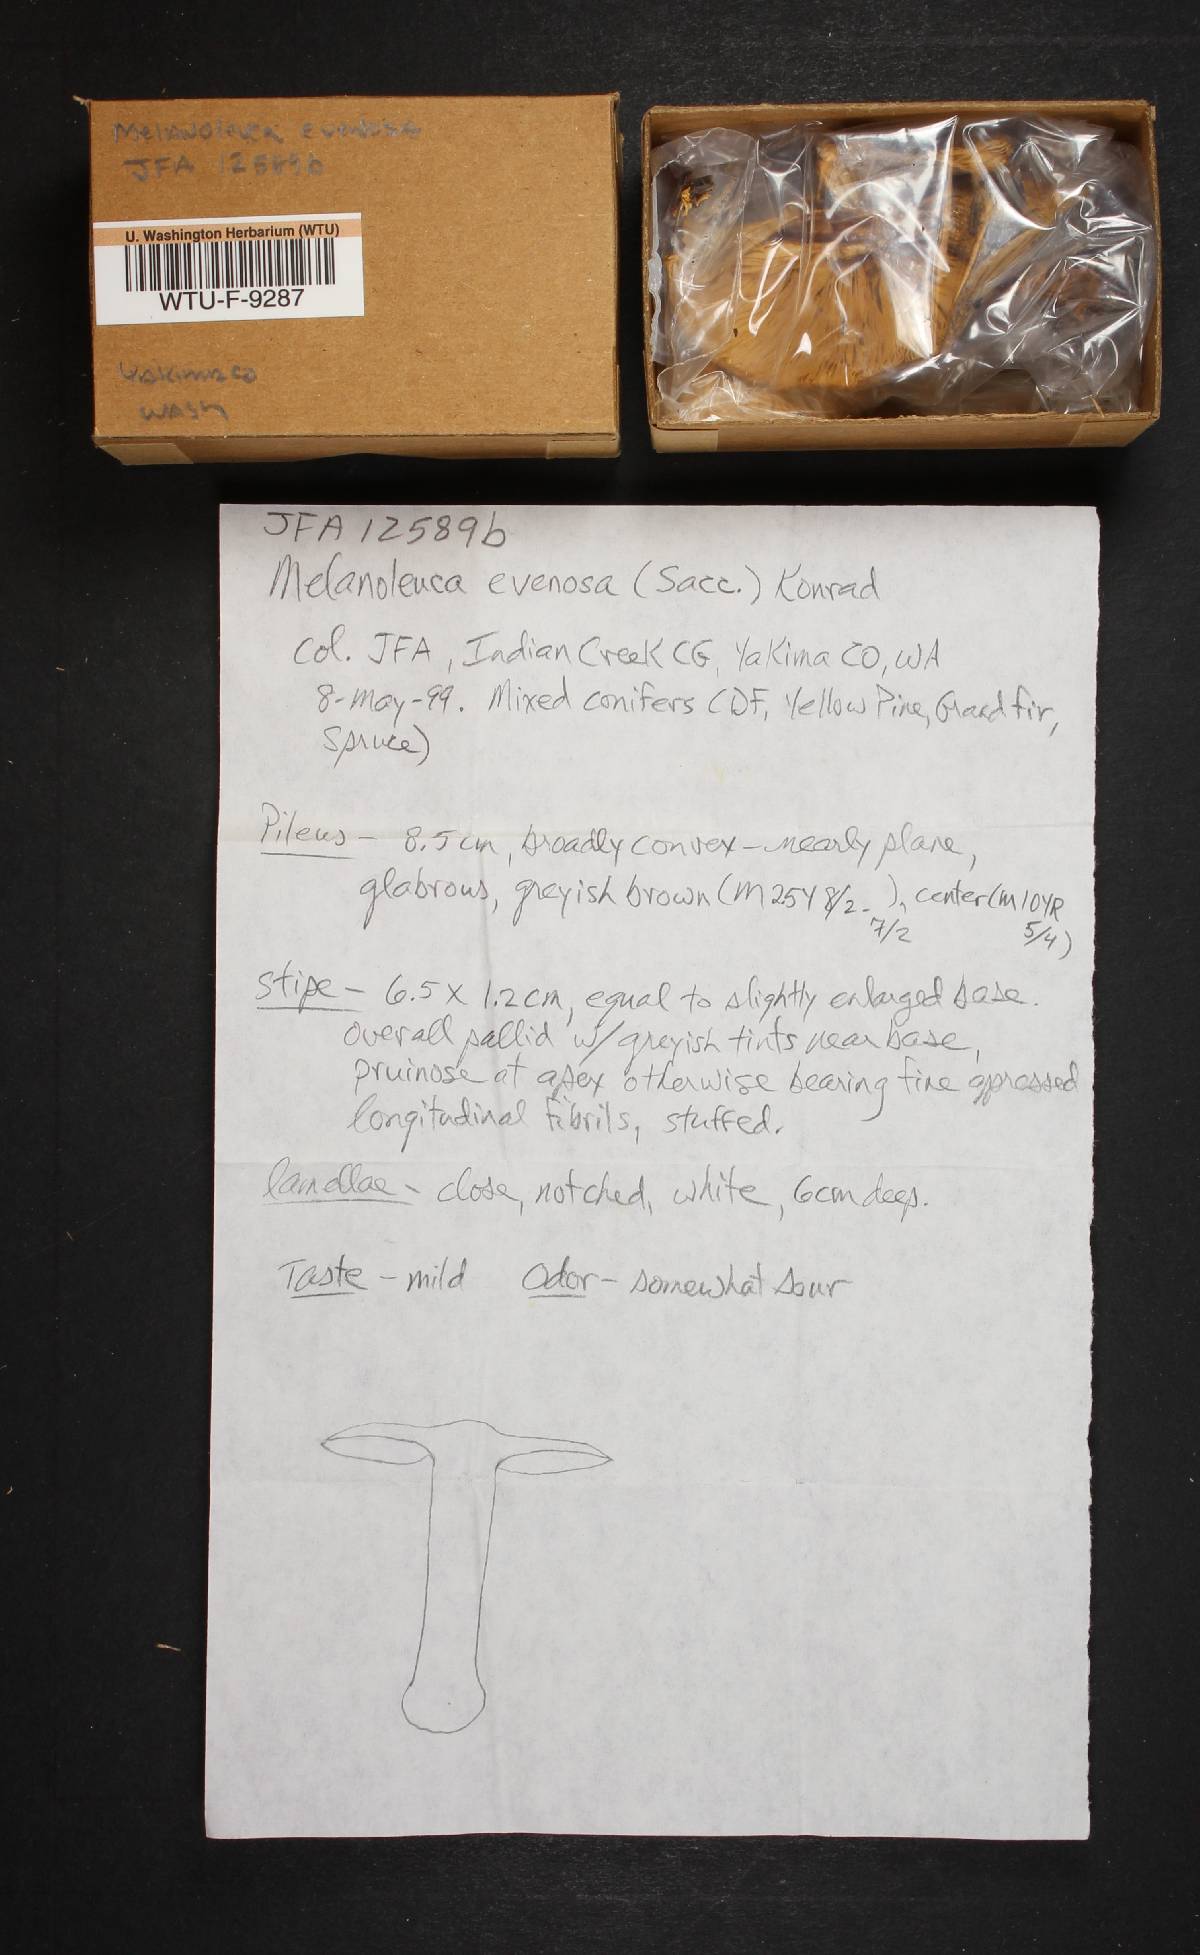 Melanoleuca evenosa
JFA 12589b
U. Washington Herbarium (WTU)
WTU-F-9287
Yakima co
WASH
JFA 12589b
Melanoleuca evenosa (Sacc.) Konrad
Col. JFA, Indian Creek CG, Yakima CO, WA
8-May-99. Mixed conifers (DF, Yellow Pine, Grand fir,
Spruce)
Pileus - 8.5 cm, broadly convex - nearly plane,
glabrous, greyish brown (M 25Y 8/2-7/2), center (M 10YR 5/4)
Stipe - 6.5 x 1.2 cm, equal to slightly enlarged base.
Overall pallid w/ greyish tints near base,
pruinose at apex otherwise bearing fine apressed
longitudinal fibrils, stuffed.
lamellae - close, notched, white, 6cm deep.
Taste - mild Odor - somewhat sour